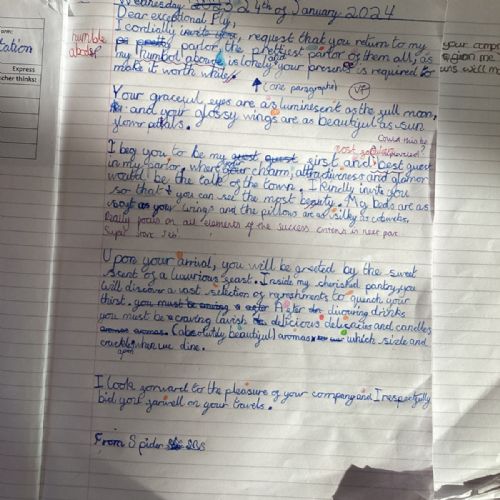 Wednesday 24th of January 2024
Dear exceptional Fly,
I cordially invite you, request that you return to my
humble
abode
parlor, the prettiest parlor of them all, as
my humbod abouse is lovely and your presens is required to
make it worth while
(one paragraph) VF
Your graceful, eyes are as luminesent as the full moon,
and your glossy wings are as beautiful as sun
glower petals.
Could this be
I beg you to be my guest first and best guest
in my parlor, where your charm, attractiveness and glamor
would be the talk of the town. I kindly invite you
so that you can see the most beauty. My beds are as
soft as your wings and the pillows are as silky as cobwebs.
Really focus on all elements of the success criteria in next part
Upon your arrival, you will be greeted by the sweet
scent of a luxurious feast. Inside my cherished pantry, you
will discover a vast selection of refreshments to quench your
thirst. you must be craving a After divouring drinks
you must be craving lavish delicious delicacies and candles
(absolutely beautiful) aromas which sizle and
crackle when we dine.
upon
I look forward to the pleasure of your company and I respectfully
bid you farwell on your travels.
From Spider
tation
Express
cher thinks:
your comp